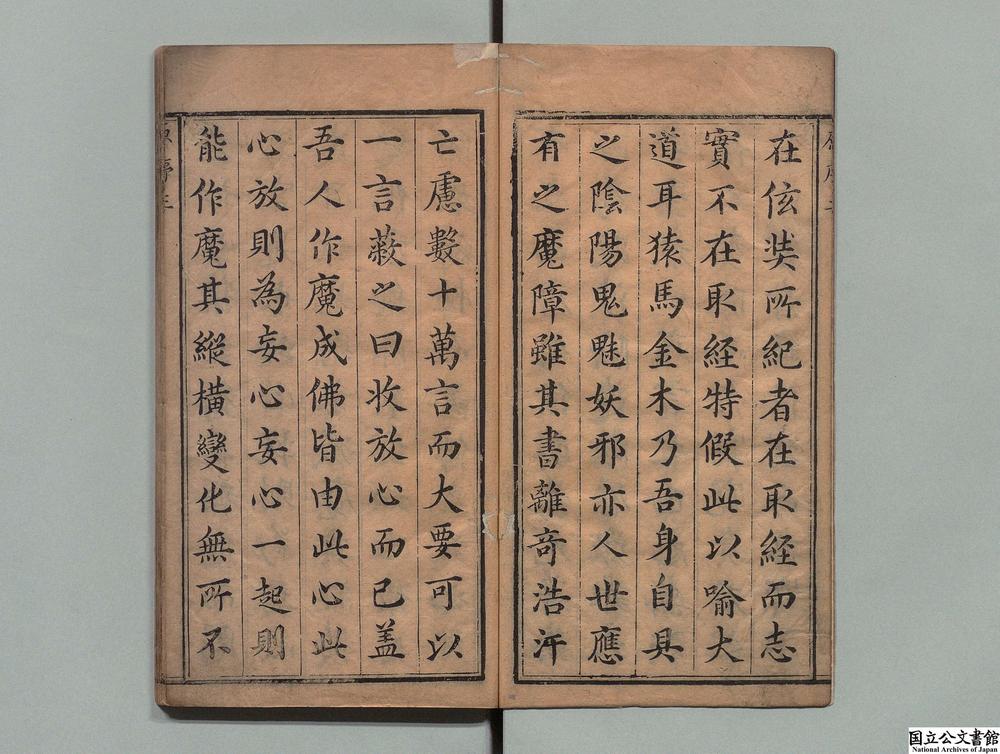 在伭奘所紀者在取經而志
實不在取経特假此以喻大
道耳猿馬金木乃吾身自具
之陰陽鬼魅妖邪亦人世應
有之魔障雖其書離竒浩汗
亡慮數十萬言而大要可以
一言蔽之曰收放心而已盖
吾人作魔成佛皆由此心此
心放則為妄心妄心一起則
能作魔其縱橫變化無所不
国立公文書館
National Archives of Japan